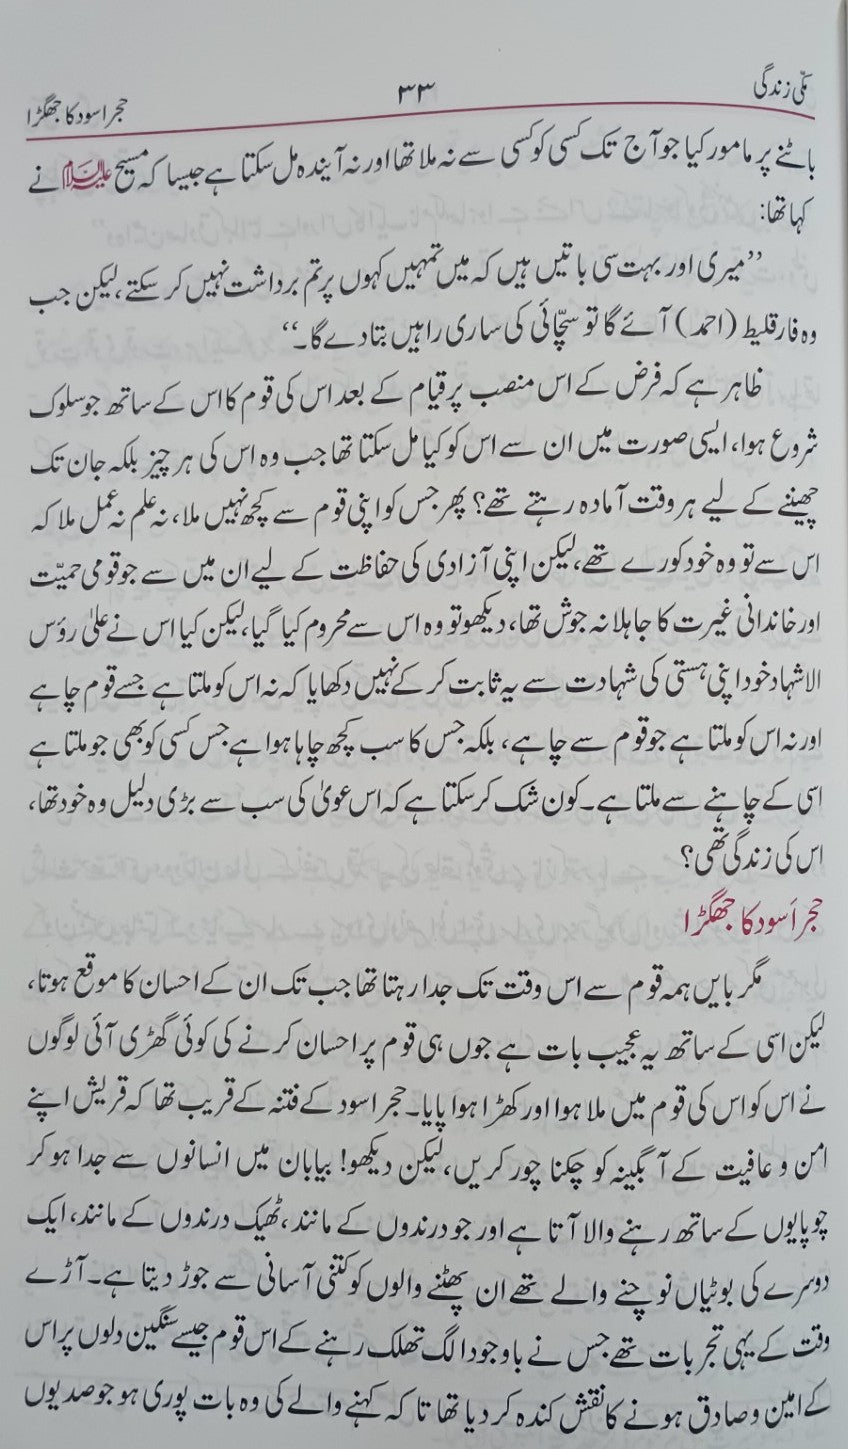 مکّی زندگی
۳۳
حجر اسود کا جھگڑا
بانٹنے پر مامور کیا جو آج تک کسی کو کسی سے نہ ملا تھا اور نہ آیندہ مل سکتا ہے جیسا کہ مسیح علیہ السلام نے
کہا تھا:
”میری اور بہت سی باتیں ہیں کہ میں تمہیں کہوں پر تم برداشت نہیں کر سکتے، لیکن جب
وہ فارقلیط (احمد) آئے گا تو سچّائی کی ساری راہیں بتا دے گا۔“
ظاہر ہے کہ فرض کے اس منصب پر قیام کے بعد اس کی قوم کا اس کے ساتھ جو سلوک
شروع ہوا، ایسی صورت میں ان سے اس کو کیا مل سکتا تھا جب وہ اس کی ہر چیز بلکہ جان تک
چھیننے کے لیے ہر وقت آمادہ رہتے تھے؟ پھر جس کو اپنی قوم سے کچھ نہیں ملا، نہ علم نہ عمل ملا کہ
اس سے تو وہ خود کورے تھے، لیکن اپنی آزادی کی حفاظت کے لیے ان میں سے جو قومی حمیّت
اور خاندانی غیرت کا جاہلانہ جوش تھا، دیکھو تو وہ اس سے محروم کیا گیا، لیکن کیا اس نے علیٰ رؤس
الاشہاد خود اپنی ہستی کی شہادت سے یہ ثابت کر کے نہیں دکھایا کہ نہ اس کو ملتا ہے جسے قوم چاہے
اور نہ اس کو ملتا ہے جو قوم سے چاہے، بلکہ جس کا سب کچھ چاہا ہوا ہے جس کسی کو بھی جو ملتا ہے
اسی کے چاہنے سے ملتا ہے۔ کون شک کر سکتا ہے کہ اس عویٰ کی سب سے بڑی دلیل وہ خود تھا،
اس کی زندگی تھی؟
حجر اَسود کا جھگڑا
مگر بایں ہمہ قوم سے اس وقت تک جدا رہتا تھا جب تک ان کے احسان کا موقع ہوتا،
لیکن اسی کے ساتھ یہ عجیب بات ہے جوں ہی قوم پر احسان کرنے کی کوئی گھڑی آئی لوگوں
نے اس کو اس کی قوم میں ملا ہوا اور کھڑا ہوا پایا۔ حجر اسود کے فتنہ کے قریب تھا کہ قریش اپنے
امن و عافیت کے آبگینہ کو چکنا چور کریں، لیکن دیکھو! بیابان میں انسانوں سے جدا ہو کر
چوپایوں کے ساتھ رہنے والا آتا ہے اور جو درندوں کے مانند، ٹھیک درندوں کے مانند، ایک
دوسرے کی بوٹیاں نوچنے والے تھے ان پھٹنے والوں کو کتنی آسانی سے جوڑ دیتا ہے۔ آڑے
وقت کے یہی تجربات تھے جس نے باوجود الگ تھلک رہنے کے اس قوم جیسے سنگین دلوں پر اس
کے امین و صادق ہونے کا نقش کندہ کر دیا تھا تا کہ کہنے والے کی وہ بات پوری ہو جو صدیوں